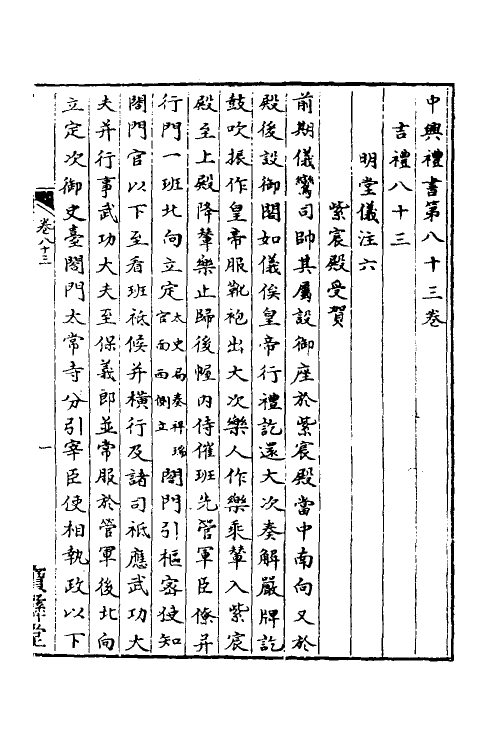 中興禮書第八十三卷
吉禮八十三
明堂儀注六
紫宸殿受賀
前期儀鸞司帥其屬設御座於紫宸殿當中南向又於
殿後設御閣如儀俟皇帝行禮訖還大次奏解嚴牌訖
鼓吹振作皇帝服靴袍出大次樂人作樂乘輦入紫宸
殿至上殿降輦樂止歸後幄內侍催班先管軍臣僚并
行門一班北向立定太史局奏祥瑞官面西側立閤門引樞密使知
閤門官以下至看班祗候并橫行及諸司祗應武功大
夫并行事武功大夫至保義郎並常服於管軍後北向
立定次御史臺閤門太常寺分引宰臣使相執政以下
卷八十三
一
寶彝堂